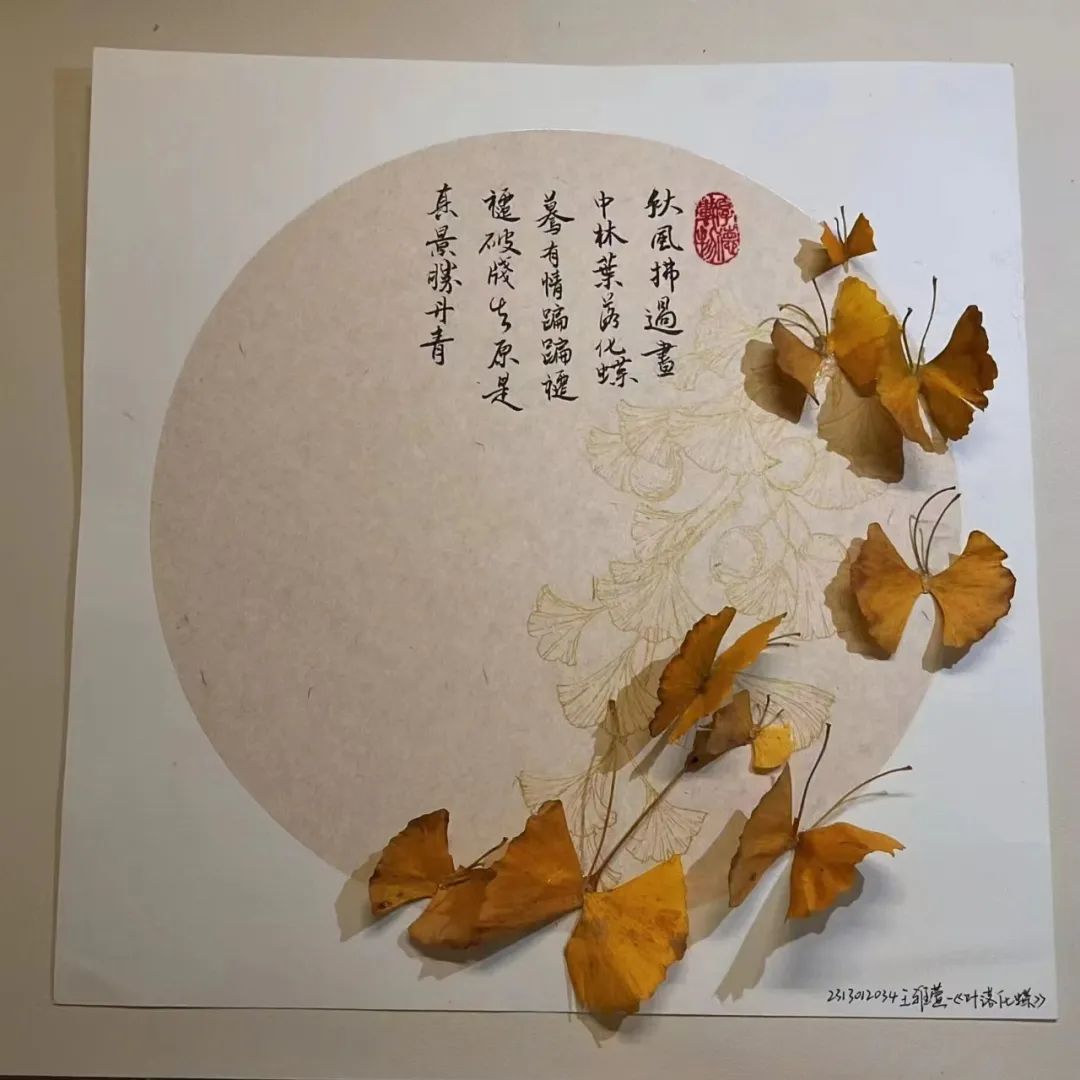 厚德載物
秋風拂過畫
中林葉落化蝶
驀有情蹁蹁褼
褼破牋去原是
真景勝丹青
2313012034王雅萱-《叶落化蝶》